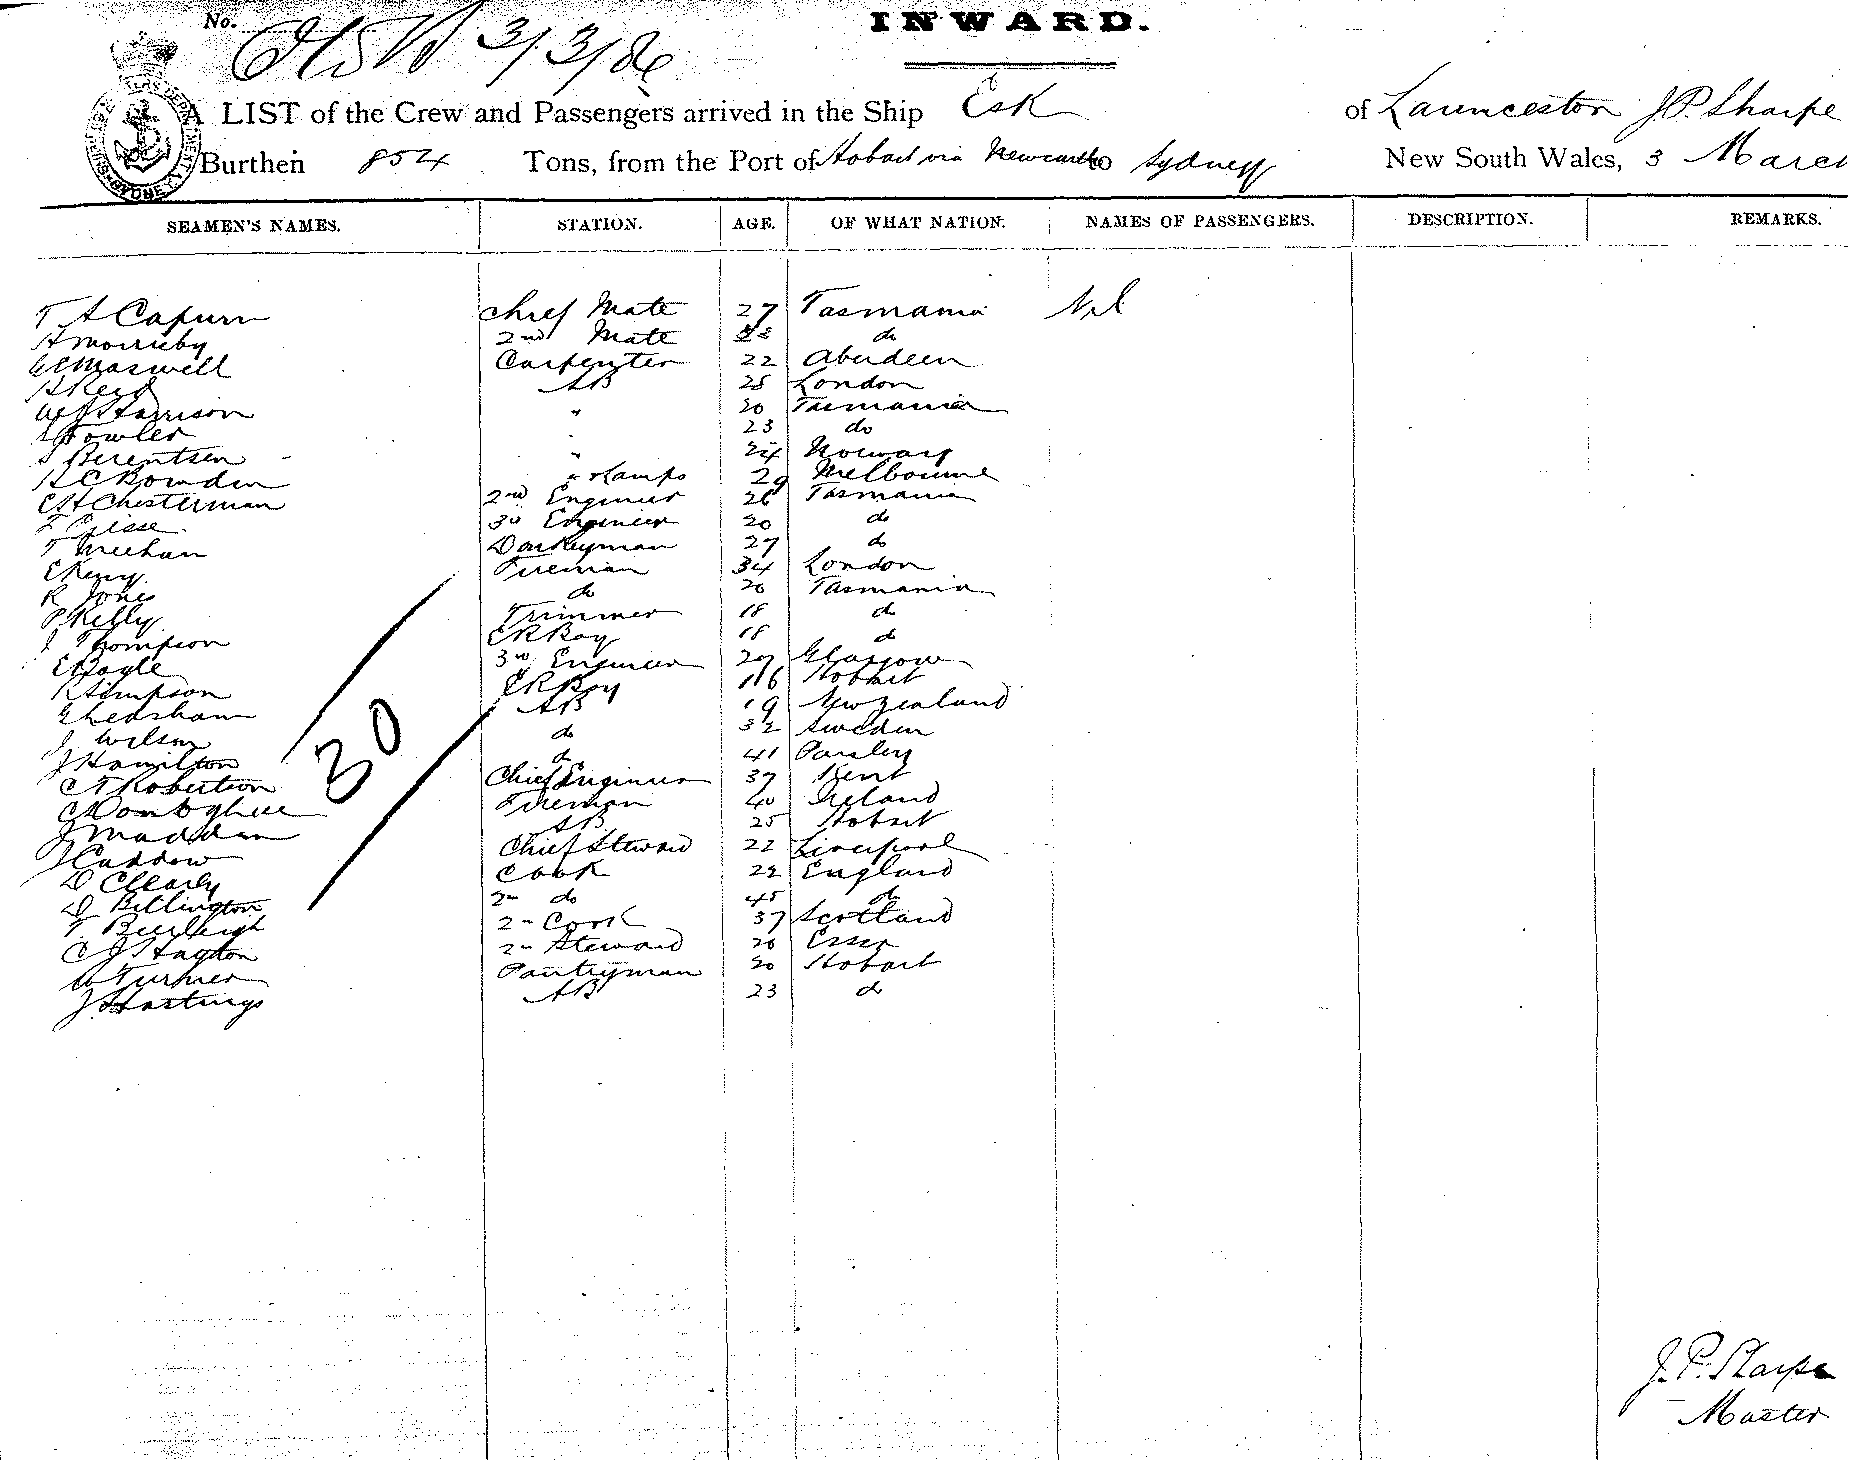 No. 3/3/86
INWARD.
A LIST of the Crew and Passengers arrived in the Ship Esk of Launceston J P Sharpe
Burthen 854 Tons, from the Port of Hobart via Newcastle to Sydney New South Wales, 3 March
SEAMEN'S NAMES. STATION. AGE. OF WHAT NATION. NAMES OF PASSENGERS. DESCRIPTION. REMARKS.
T A Capurn Chief Mate 27 Tasmania Nil
2nd Mate do
Maxwell Carpenter 22 Aberdeen
AB 25 London
Harrison " 20 Tasmania
Fowler " 23 do
Berentsen " 24 Norway
H C Bowden " & Lamps 29 Melbourne
C H Chesterman 2nd Engineer 26 Tasmania
3rd Engineer 20 do
T Meehan Donkeyman 27 do
Fireman 34 London
R Jones do 20 Tasmania
P Kelly Trimmer 18 do
J Thompson E R Boy 18 do
E Bogle 3rd Engineer Glasgow
Simpson E R Boy 16 Hobart
AB 19 New Zealand
J Wilson do 32 Sweden
J Hamilton do 41 Paisley
C T Robertson Chief Engineer 37 Kent
Fireman 40 Ireland
J Madden AB 25 Hobart
Chief Steward 22 Liverpool
D Clearly Cook 22 England
D Billington 2nd do 45 do
T Burleigh 2nd Cook 37 Scotland
C J Hayton 2nd Steward 20 Essex
W Turner Pantryman 20 Hobart
J Hastings AB 23 do
30
J. P. Sharpe
Master